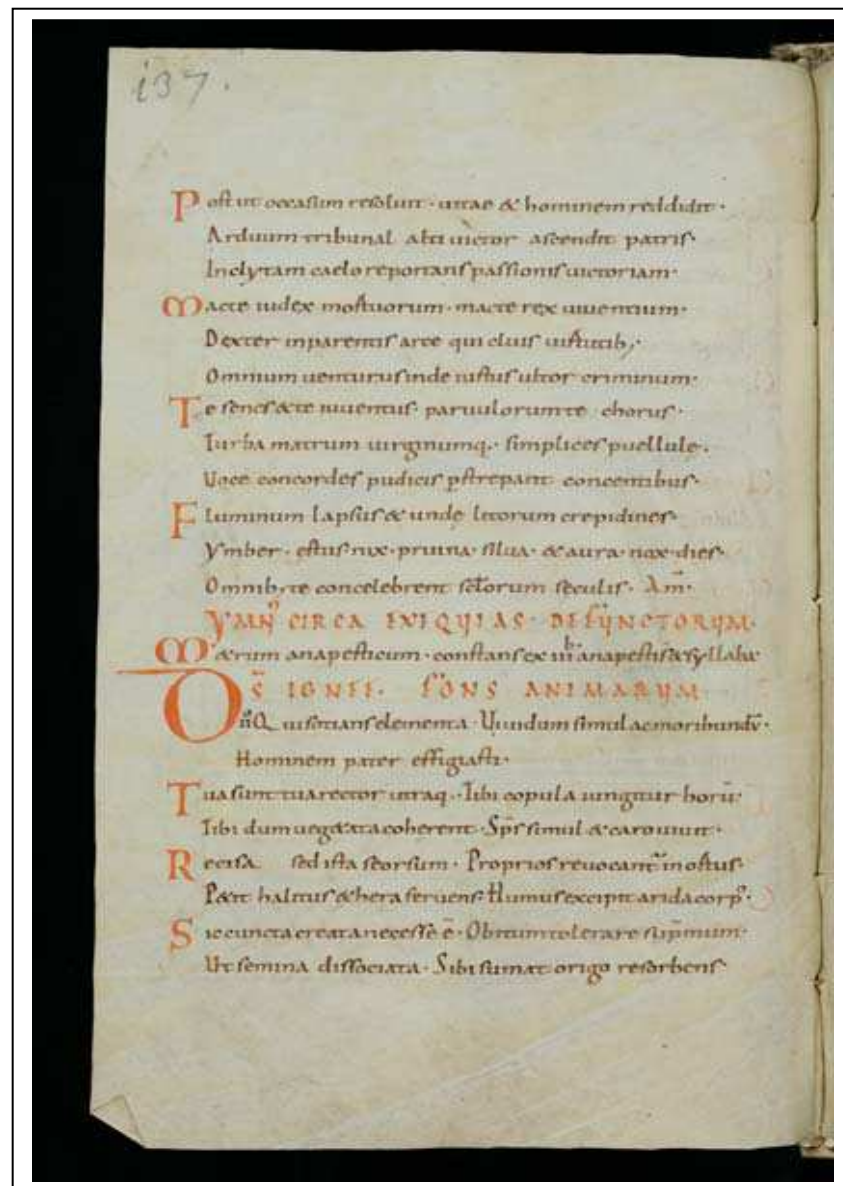 i37.
Post ut occasum resoluit · uitae & hominem reddidit ·
Arduum tribunal alti uictor ascendit patris·
Inclytam caelo reportans passionis uictoriam·
Macte iudex mortuorum · macte rex uiuentium·
Dexter in parentis arce qui cluis uirtutib;·
Omnium uenturus inde iustus ultor criminum·
Te senes & te iuuentus · paruulorum te chorus·
Turba matrum uirginumq· simplices puellule·
Uoce concordes pudicis pstrepant concentibus·
Fluminum lapsus & unde litorum crepidines·
Ymber · estus nix · pruina · silua · & aura · nox · dies·
Omnib; te concelebrent sclorum seculis · Am̄·
YMN CIRCA EXEQUIAS · DEFUNCTORUM·
Metrum anapesticum · constans ex anapestis & syllaba
DS IGNEE · FONS ANIMARUM
Qui sotians elementa · Uiuidum simul ac moribundū·
Hominem pater effigiasti·
Tua sunt tua rector utraq· Tibi copula iungitur horū·
Tibi dum ueg&ata coherent · Sp̄s simul & caro uiuit·
Recisa sed ista seorsum · Proprios reuocant in ortus·
P&it halitus & hera feruens · Humus excipit arida corp·
Sic cuncta creata necesse ē · Obitum tolerare sup̄mum·
Ut semina dissociata · Sibi sumat origo resorbens